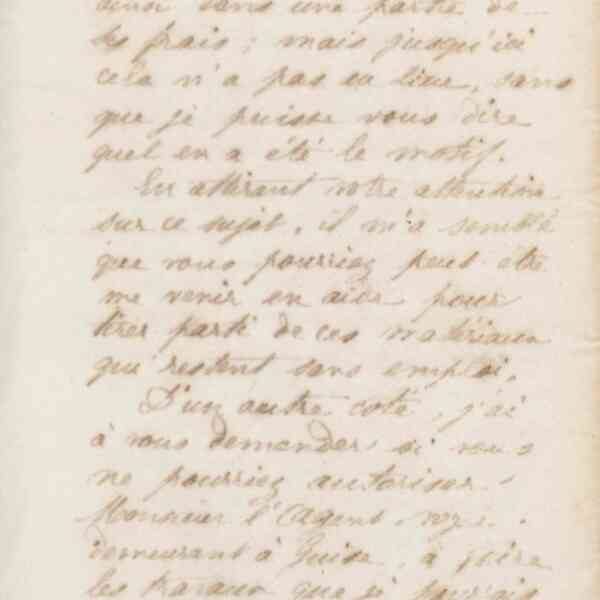 ainsi dans une partie de
les frais ; mais jusqu'ici
cela n'a pas eu lieu, sans
que je puisse vous dire
quel en a été le motif.
En attirant votre attention
sur ce sujet, il m'a semblé
que vous pourriez peut être
me venir en aide pour
tirer parti de ces matériaux
qui restent sans emploi.
D'un autre coté, j'ai
à vous demander si vous
ne pourriez autoriser
Monsieur l'Agent
demeurant à Guise, à faire
les travaux que je pourrais